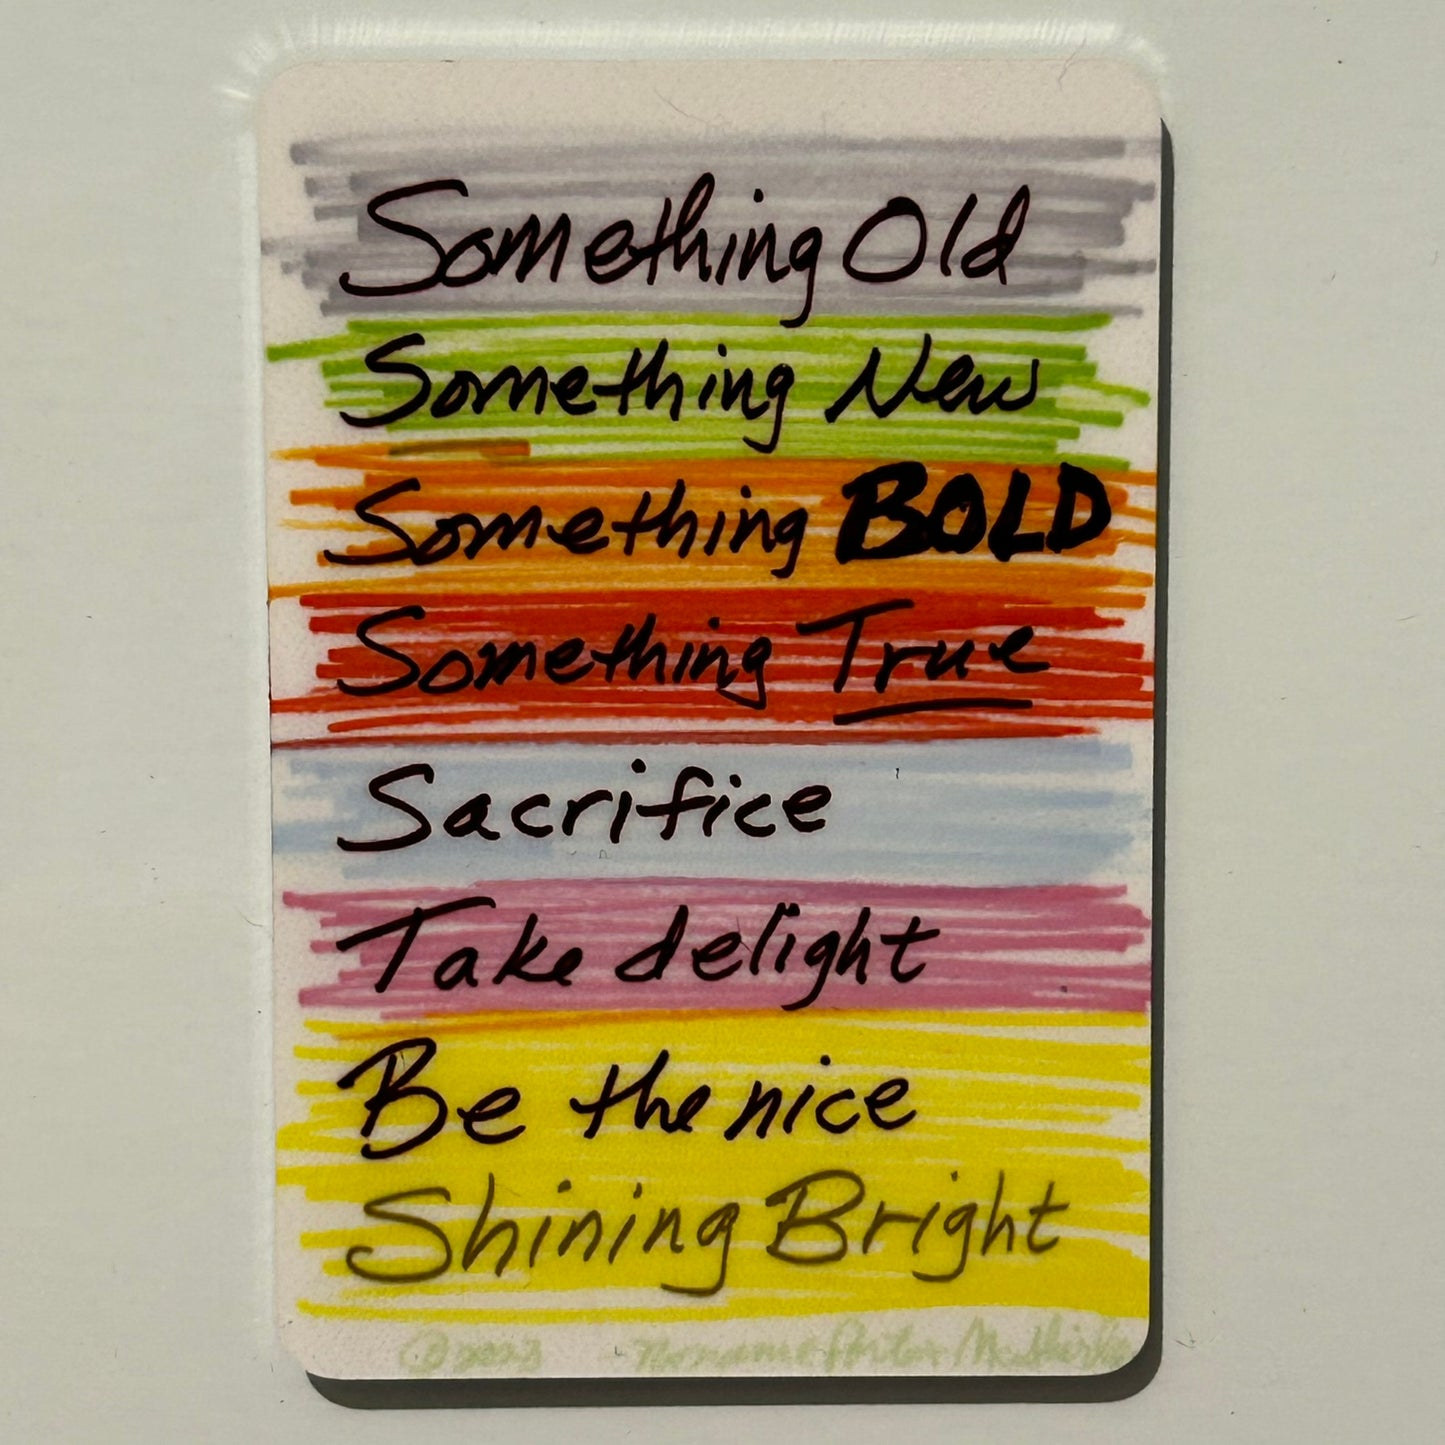 Something Old
Something New
Something BOLD
Something True
Sacrifice
Take delight
Be the nice
Shining Bright
©2023